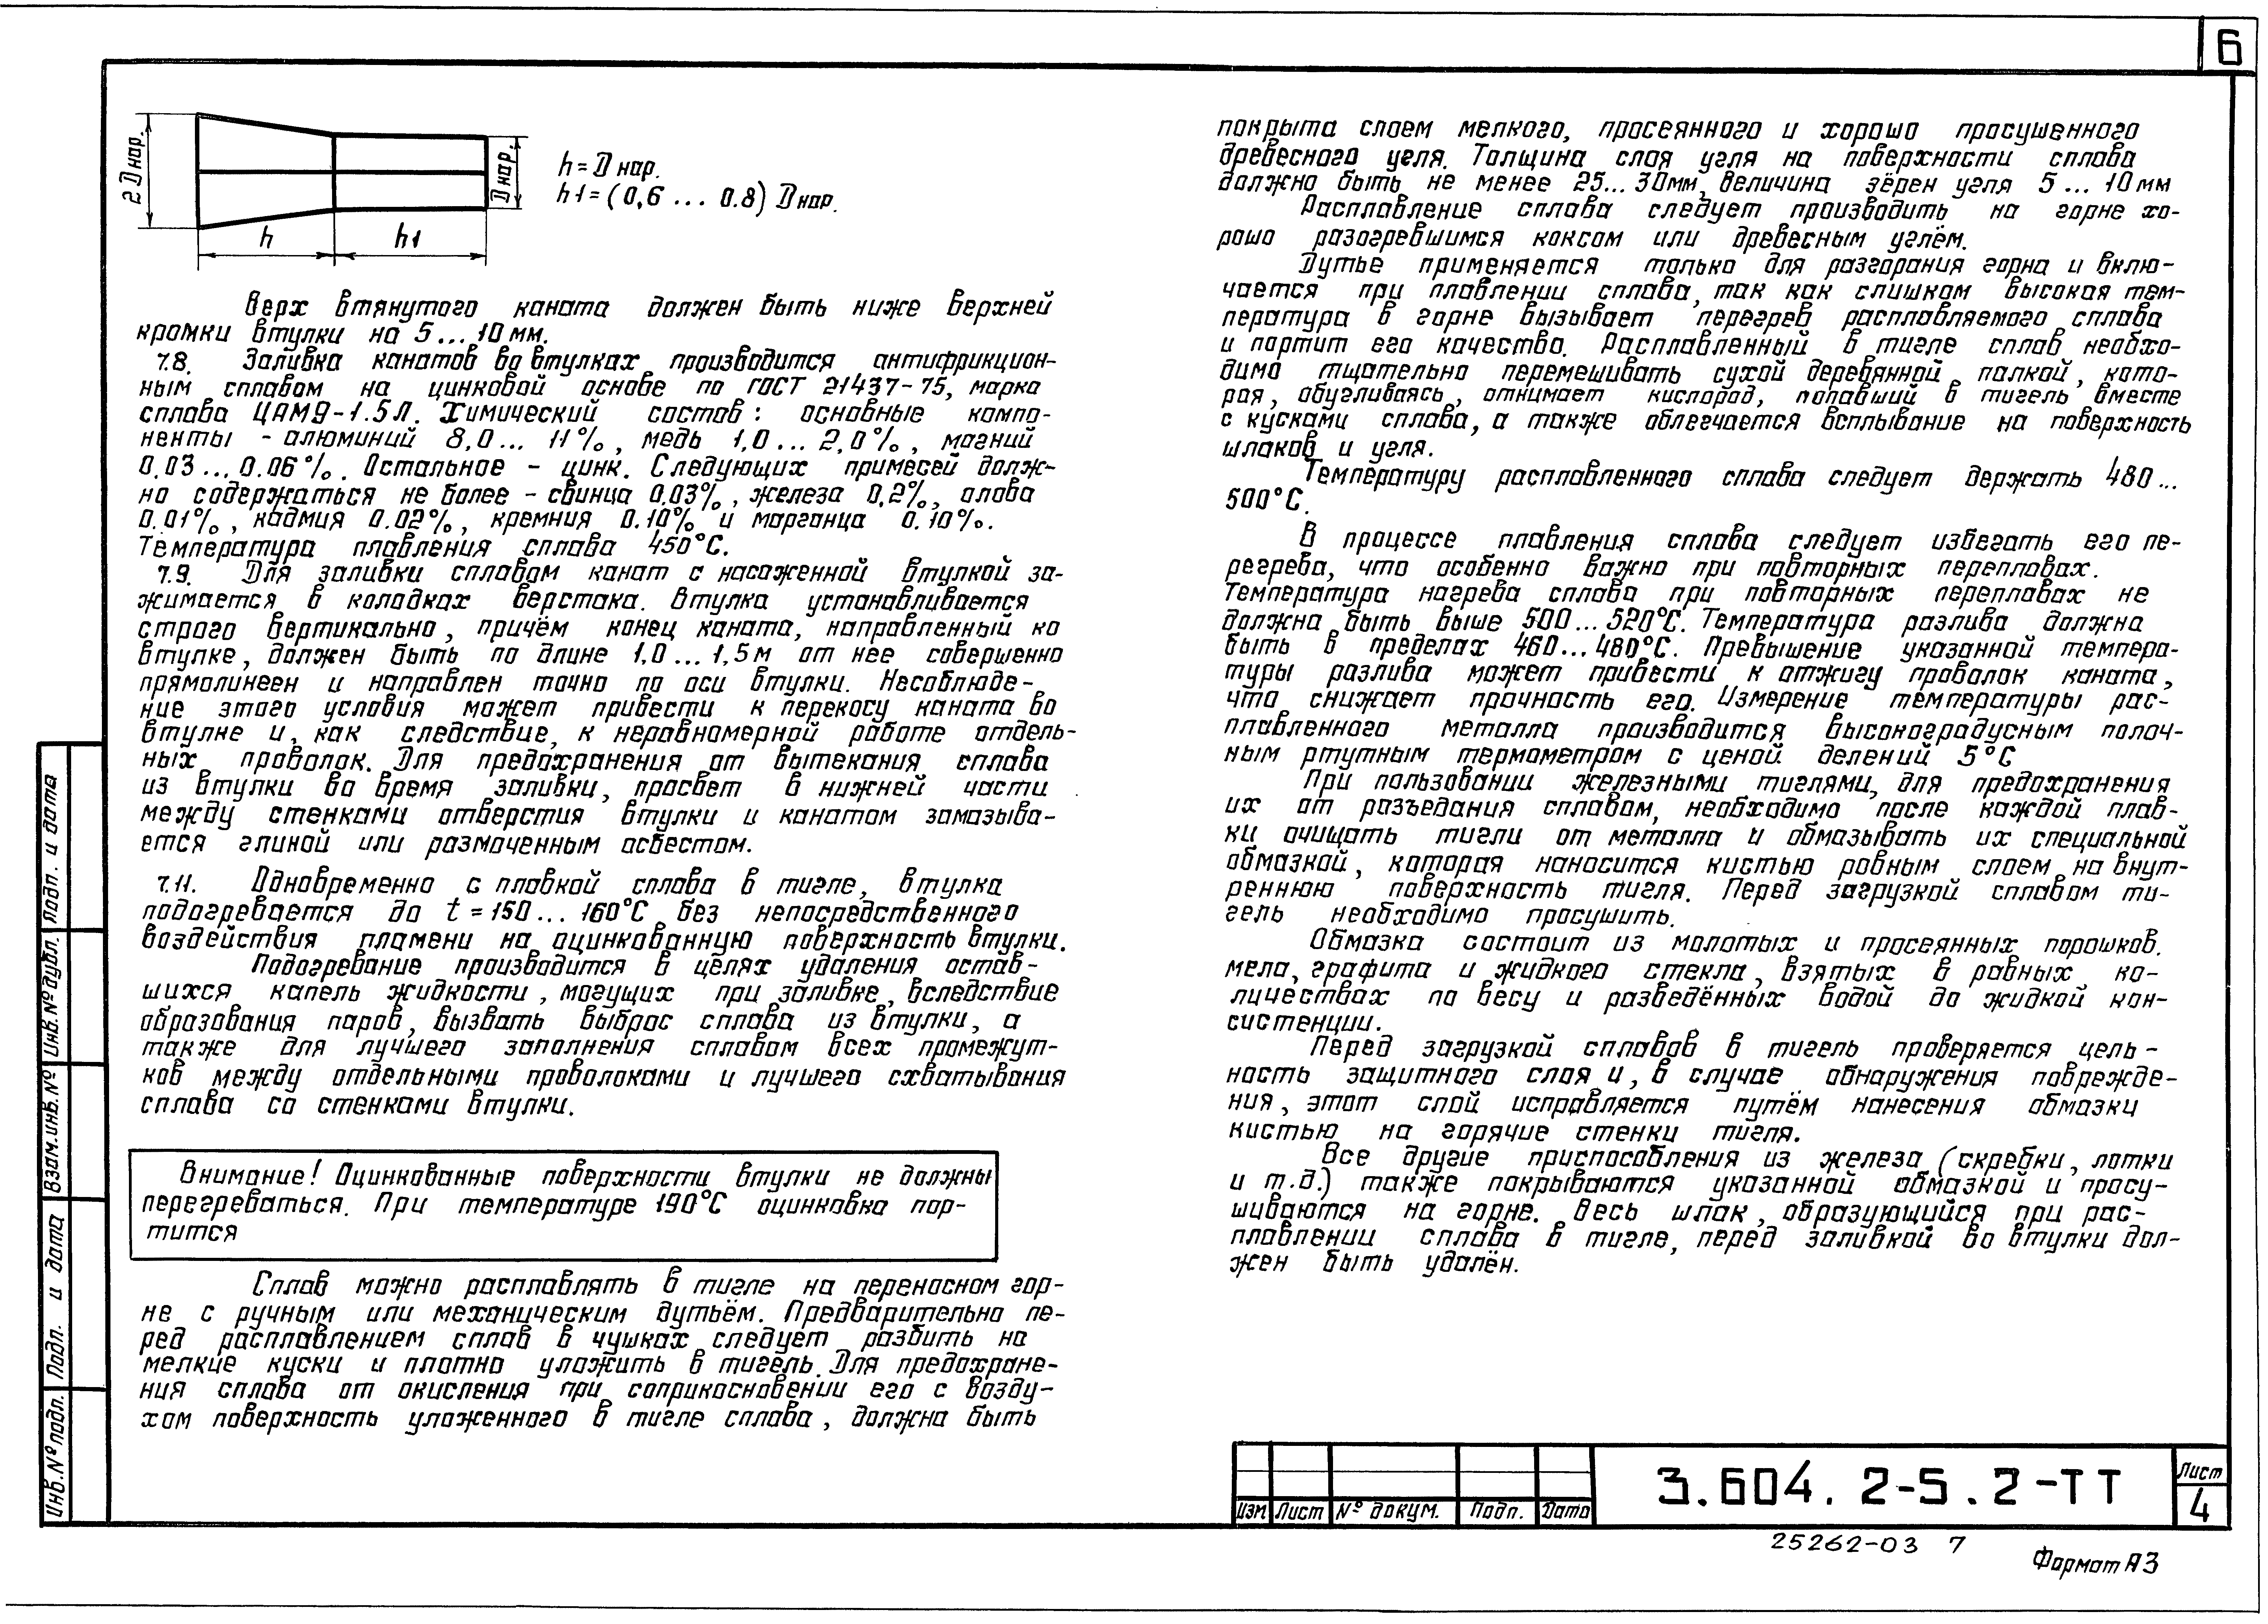 6
2 D нар.
D нар.
h
h1
h = D нар.
h1 = (0,6 ... 0.8) D нар.
Верх втянутого каната должен быть ниже верхней
кромки втулки на 5...10 мм.
7.8. Заливка канатов во втулках производится антифрикцион-
ным сплавом на цинковой основе по ГОСТ 21437-75, марка
сплава ЦАМ9-1.5Л. Химический состав: основные компо-
ненты - алюминий 8,0... 11%, медь 1,0... 2,0%, магний
0,03...0.06%. Остальное - цинк. Следующих примесей долж-
но содержаться не более - свинца 0,03%, железа 0,2%, олова
0.01%, кадмия 0.02%, кремния 0.10% и марганца 0.10%.
Температура плавления сплава 450°С.
7.9. Для заливки сплавом канат с насаженной втулкой за-
жимается в колодках верстака. Втулка устанавливается
строго вертикально, причём конец каната, направленный ко
втулке, должен быть по длине 1,0...1,5 м от нее совершенно
прямолинеен и направлен точно по оси втулки. Несоблюде-
ние этого условия может привести к перекосу каната во
втулке и, как следствие, к неравномерной работе отдель-
ных проволок. Для предохранения от вытекания сплава
из втулки во время заливки, просвет в нижней части
между стенками отверстия втулки и канатом замазыва-
ется глиной или размоченным асбестом.
7.11. Одновременно с плавкой сплава в тигле, втулка
подогревается до t = 150... 160°С без непосредственного
воздействия пламени на оцинкованную поверхность втулки.
Подогревание производится в целях удаления остав-
шихся капель жидкости, могущих при заливке, вследствие
образования паров, вызвать выброс сплава из втулки, а
также для лучшего заполнения сплавом всех промежут-
ков между отдельными проволоками и лучшего схватывания
сплава со стенками втулки.
Внимание! Оцинкованные поверхности втулки не должны
перегреваться. При температуре 190°С оцинковка пор-
тится
Сплав можно расплавлять в тигле на переносном гор-
не с ручным или механическим дутьём. Предварительно пе-
ред расплавлением сплав в чушках следует разбить на
мелкие куски и плотно уложить в тигель. Для предохране-
ния сплава от окисления при соприкосновении его с возду-
хом поверхность уложенного в тигле сплава, должна быть
покрыта слоем мелкого, просеянного и хорошо просушенного
древесного угля. Толщина слоя угля на поверхности сплава
должно быть не менее 25...30мм, величина зёрен угля 5...10 мм
Расплавление сплава следует производить на горне хо-
рошо разогревшимся коксом или древесным углём.
Дутье применяется только для разгорания горна и вклю-
чается при плавлении сплава, так как слишком высокая тем-
пература в горне вызывает перегрев расплавляемого сплава
и портит его качество. Расплавленный в тигле сплав необхо-
димо тщательно перемешивать сухой деревянной палкой, кото-
рая, обугливаясь, отнимает кислород, попавший в тигель вместе
с кусками сплава, а также облегчается всплывание на поверхность
шлаков и угля.
Температуру расплавленного сплава следует держать 480...
500°С.
В процессе плавления сплава следует избегать его пе-
регрева, что особенно важно при повторных переплавах.
Температура нагрева сплава при повторных переплавах не
должна быть выше 500...520°С. Температура разлива должна
быть в пределах 460...480°С. Превышение указанной темпера-
туры разлива может привести к отжигу проволок каната,
что снижает прочность его. Измерение температуры рас-
плавленного металла производится высокоградусным полоч-
ным ртутным термометром с ценой делений 5°С
При пользовании железными тиглями, для предохранения
их от разъедания сплавом, необходимо после каждой плав-
ки очищать тигли от металла и обмазывать их специальной
обмазкой, которая наносится кистью ровным слоем на внут-
реннюю поверхность тигля. Перед загрузкой сплавом ти-
гель необходимо просушить.
Обмазка состоит из молотых и просеянных порошков.
мела, графита и жидкого стекла, взятых в равных ко-
личествах по весу и разведённых водой до жидкой кон-
систенции.
Перед загрузкой сплавов в тигель проверяется цель-
ность защитного слоя и, в случае обнаружения поврежде-
ния, этот слой исправляется путём нанесения обмазки
кистью на горячие стенки тигля.
Все другие приспособления из железа (скребки, лотки
и т.д.) также покрываются указанной обмазкой и просу-
шиваются на горне. Весь шлак, образующийся при рас-
плавлении сплава в тигле, перед заливкой во втулки дол-
жен быть удалён.
Инв. № подл. Подп. и дата Взам. инв. № Инв. № дубл. Подп. и дата
Изм Лист № докум. Подп. Дата
3.604.2-5.2-ТТ
Лист
4
25262-03 7
Формат А3